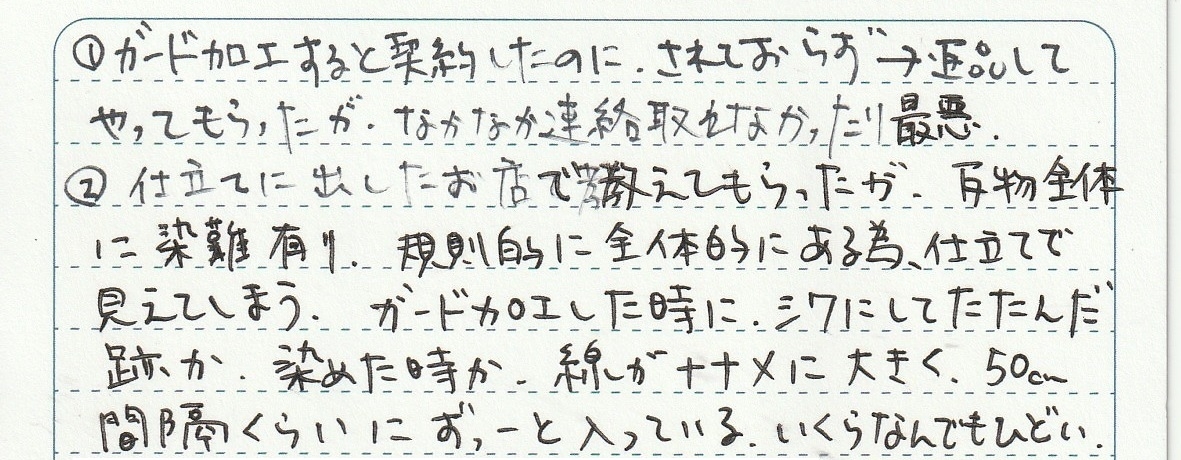 ①ガード加工すると契約したのに、されておらず→返品して
やってもらったが、なかなか連絡取れなかったり最悪.
② 仕立てに出したお店で教えてもらったが、反物全体
に染難有り. 規則的に全体的にある為、仕立てで
見えてしまう. ガード加工した時に、シワにしてたたんだ
跡か、染めた時か、線がナナメに大きく、50cm
間隔くらいにずっーと入っている. いくらなんでもひどい.